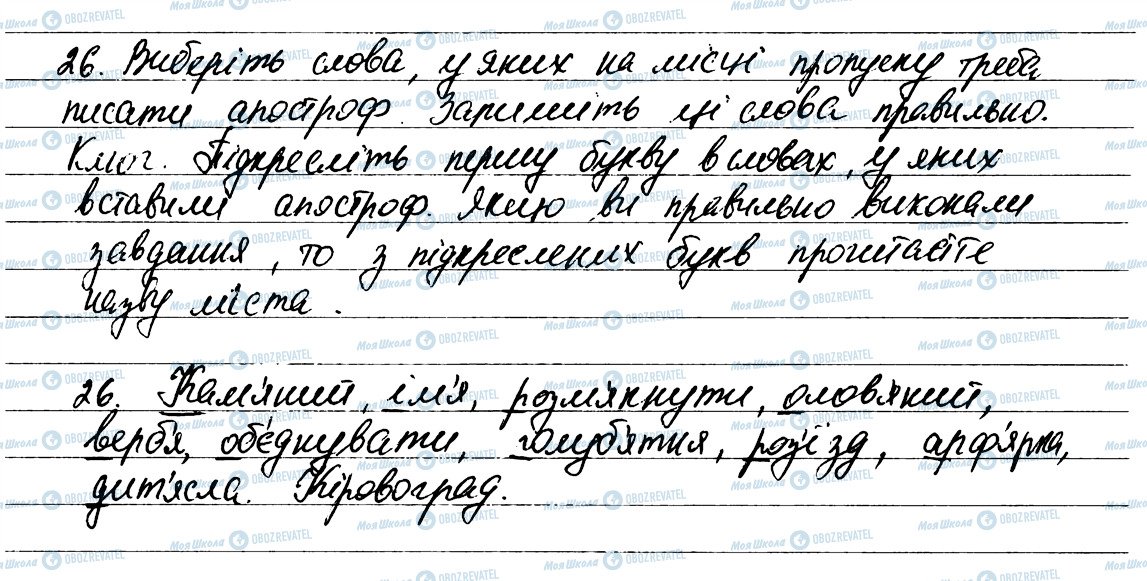 26. Виберіть слова, у яких на місці пропуску треба
писати апостроф. Запишіть ці слова правильно.
Ключ. Підкресліть першу букву в словах, у яких
вставили апостроф. Якщо ви правильно виконали
завдання, то з підкреслених букв прочитаєте
назву міста.
26. Кам'яний, ім'я, розм'якнути, олов'яний,
верб'я, об'єднувати, голуб'ятня, роз'їзд, арф'ярка,
дит'ясла. Кіровоград.